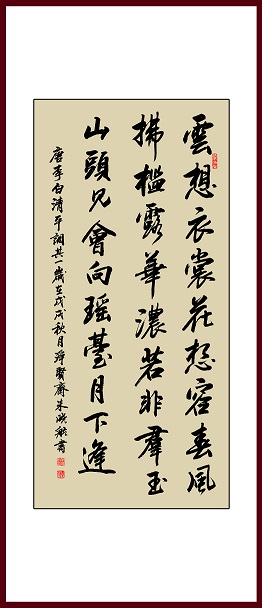 雲想衣裳花想容春風
拂檻露華濃若非羣玉
山頭見會向瑶臺月下逢
唐李白清平調其一歲在戊戌秋月淨賢齋朱書